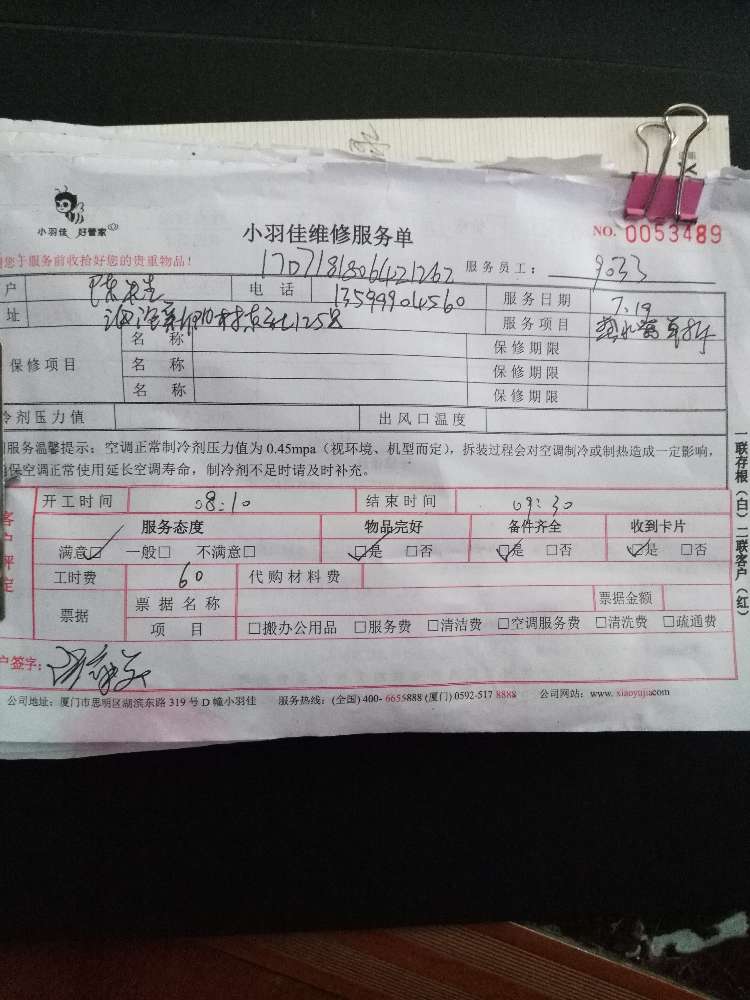 小羽佳 好管家
小羽佳维修服务单
NO. 0053489
您于服务前收拾好您的贵重物品!
17071818066421262
服务员工: 9033
户 陈先生 电话 13599904560 服务日期 7.19
址 1258 服务项目 热水器
保修项目 名称 保修期限
名称 保修期限
名称 保修期限
冷剂压力值 出风口温度
服务温馨提示: 空调正常制冷剂压力值为 0.45mpa (视环境、机型而定), 拆装过程会对空调制冷或制热造成一定影响,
保空调正常使用延长空调寿命, 制冷剂不足时请及时补充。
开工时间 08:10 结束时间 09:30
客户评定
服务态度 物品完好 备件齐全 收到卡片
满意☑ 一般□ 不满意□ ☑是 □否 ☑是 □否 ☑是 □否
工时费 60 代购材料费
票据 票据名称 票据金额
项目 □搬办公用品 □服务费 □清洁费 □空调服务费 □清洗费 □疏通费
户签字:
公司地址: 厦门市思明区湖滨东路 319 号 D 幢小羽佳 服务热线: (全国) 400- 6655888 (厦门) 0592-517 8888 公司网站: www. xiaoyujia.com
一联存根(白) 二联客户(红)